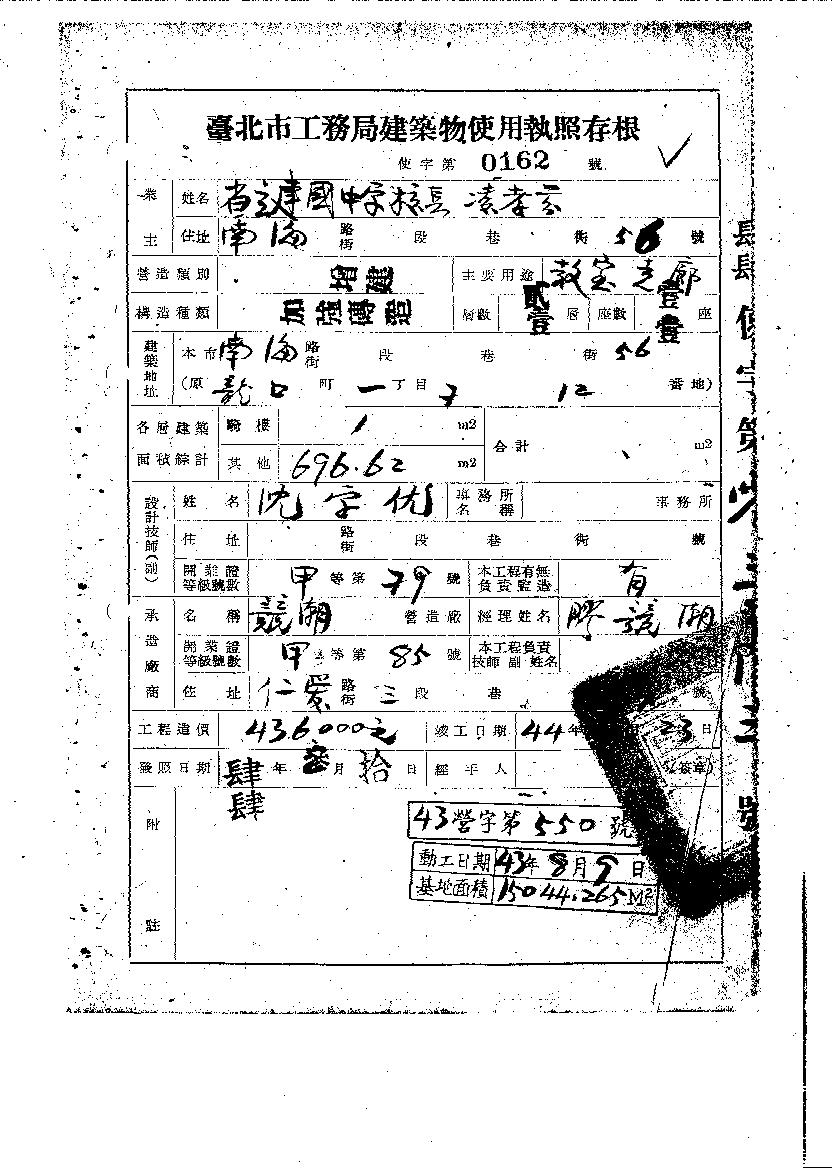 臺北市工務局建築物使用執照存根
使字第 0162 號
業主 姓名 省立建國中學校長
住址 南海 路街 段 巷 街 56 號
營造種類 增建 主要用途 教室走廊
構造種類 加強磚造 層數 貳壹 層 座數 壹壹 座
建築地址 本市 南海 路街 段 巷 街 56
(原 龍口 町 一 丁目 7 12 番地)
各層建築面積綜計 騎樓 m2 合計 m2
其他 696.62 m2
設計技師(副) 姓名 沈學优 事務所名稱 事務所
住址 路街 段 巷 街 號
開業證等級號數 甲 等第 79 號 本工程有無負責監造 有
承造廠商 名稱 競潮 營造廠 經理姓名 競潮
開業證等級號數 甲 等第 85 號 本工程負責技師副姓名
住址 仁愛 路街 三 段 巷 號
工程造價 436000元 竣工日期 44年 23日
發照日期 肆肆 年 月 拾 日 經手人 (簽章)
附註
43營字第550號
動工日期 43年8月9日
基地面積 15044.265M2
肆肆 使字第
號